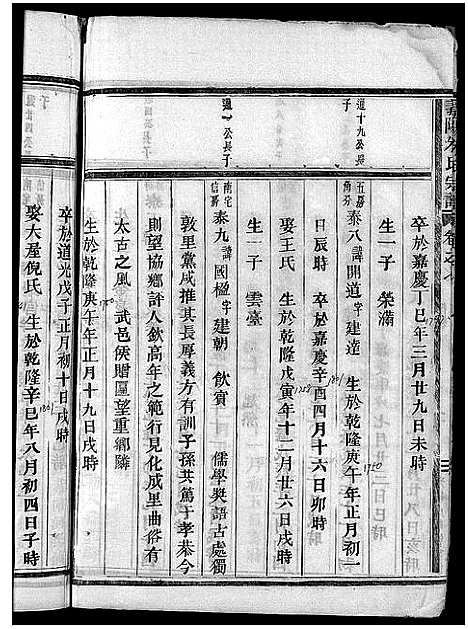 嘉陽朱氏宗譜
卒於嘉慶丁巳年三月廿九日未時
生一子 榮滿
道十九公長子
五房
泰八 諱開道字建達 生於乾隆庚午年正月初一
1750
日辰時 卒於嘉慶辛酉四月十六日卯時
1801
娶王氏 生於乾隆戊寅年十二月廿六日戌時
1758
生一子 雲臺
公長子
南宅
泰九 諱國楹字建朝 飲賓 儒學獎語古處獨
敦里黨咸推其長厚義方有訓子孫共篤于孝恭今
則望協鄉評人欽高年之範行見化成里曲俗有
太古之風 武邑侯贈匾望重鄉隣
生於乾隆庚午年正月十九日戌時
卒於道光戊子正月初十日戌時
娶大屋倪氏 生於乾隆辛巳年八月初四日子時